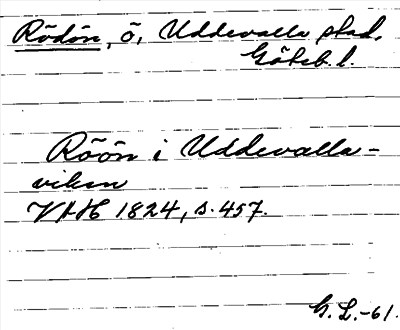 Rödön, ö, Uddevalla stad.
Göteb. l.
Röön i Uddevalla-
viken
VAH 1824, s. 457.
G. L. -61.